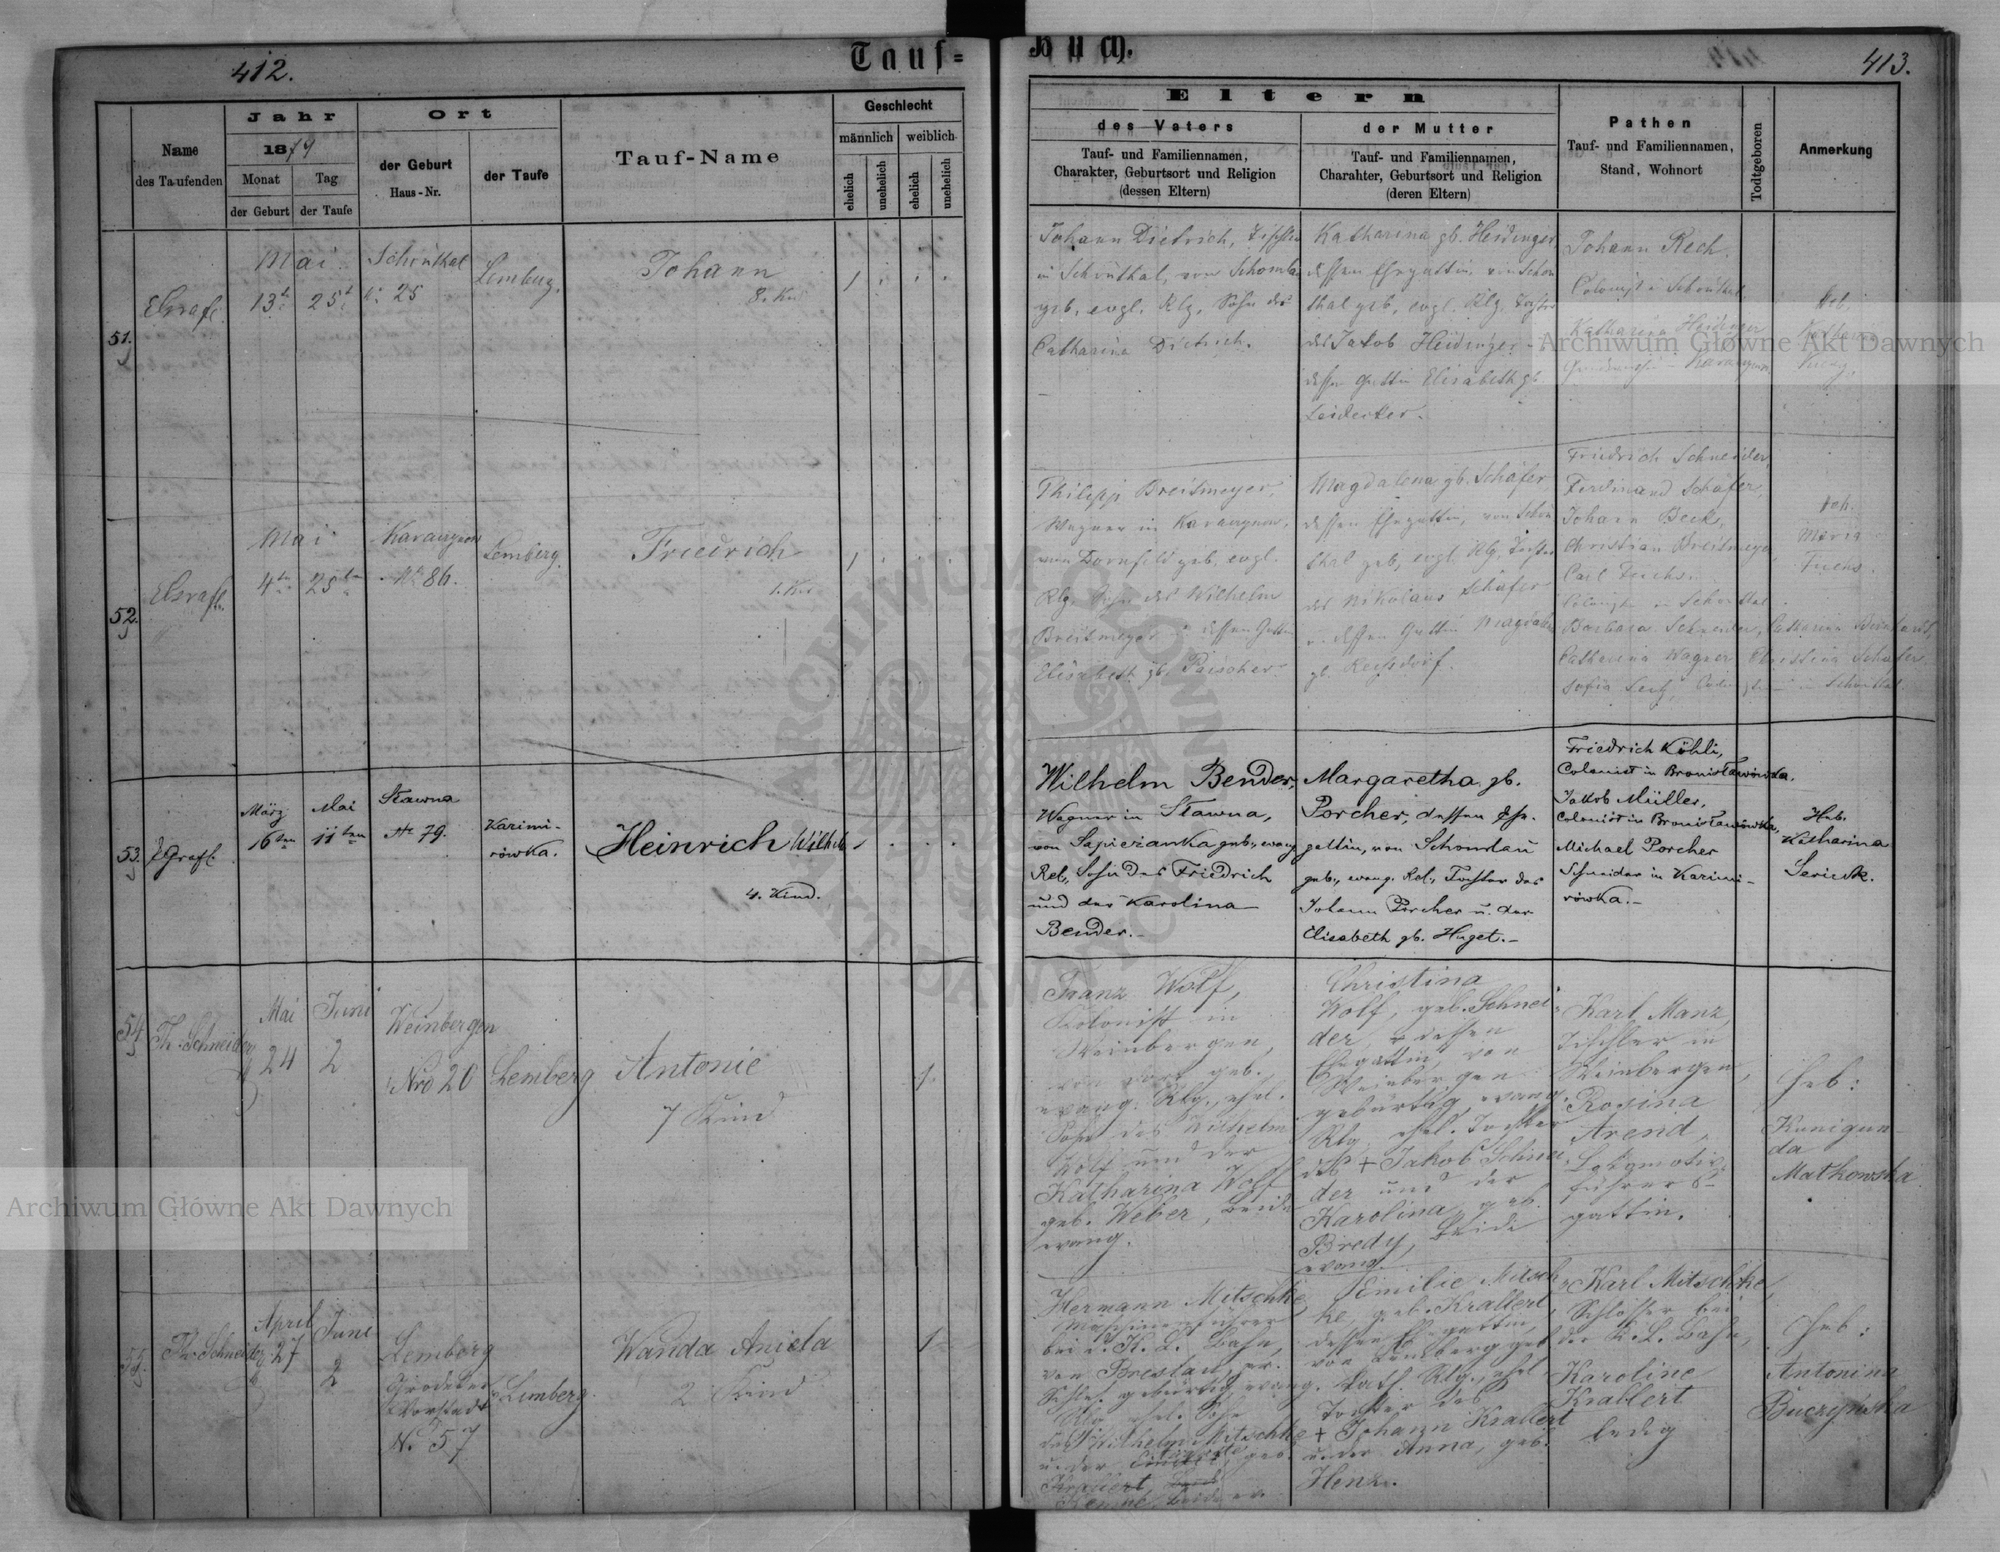 412.
Tauf=
Name
des Taufenden
Jahr
1879
Monat
Tag
der Geburt
der Taufe
Ort
der Geburt
Haus-Nr.
der Taufe
Tauf-Name
Geschlecht
männlich
weiblich
ehelich
unehelich
ehelich
unehelich
51.
Mai
13t
25t
Schönthal
25
Lemberg.
Johann
8. Kind
1
52.
Mai
4ten
25ten
No 86.
Lemberg.
Friedrich
1. Kind
1
53.
EGrafl.
März
6ten
Mai
11ten
Stawna
No 79.
Kazimi-
rówka.
Heinrich Wilhelm
4. Kind.
54
Th. Schneider
Mai
24
Juni
2
Weinbergen
Nro 20
Lemberg
Antonie
7 Kind
1.
55.
Th. Schneider
April
27
Juni
2
Lemberg
Grodeker
Vorstadt
N. 57
Lemberg.
Wanda Aniela
2 Kind
1
Buch.
413.
Eltern
des Vaters
Tauf- und Familiennamen,
Charakter, Geburtsort und Religion
(dessen Eltern)
der Mutter
Tauf- und Familiennamen,
Charahter, Geburtsort und Religion
(deren Eltern)
Pathen
Tauf- und Familiennamen,
Stand, Wohnort
Todtgeboren
Anmerkung
Johann Dietrich, Tischler
in Schönthal, von
geb. evgl. Rlg, Sohn der
Catharina Dietrich.
Katharina gb. Heidinger
dessen Ehegattin, von Schön
thal geb, evgl. Rlg. Tochter
des Jakob Heidinger
dessen Gattin Elisabeth gb.
Leidecker.
Johann Rech.
Colonist in Schönthal
Katharina Heidinger
Heb.
Philipp Breitmeyer,
Wagner in
von Dornfeld geb. evgl.
Rlg. Sohn des Wilhelm
Breitmeyer u. dessen Gattin
Elisabeth gb.
Magdalena gb. Schäfer
dessen Ehegattin, von Schön
thal geb, evgl. Rlg, Tochter
des Nikolaus Schäfer
u. dessen Gattin Magdalena
gb.
Friedrich Schneider,
Ferdinand Schäfer,
Johann Beck,
Christian Breitmeyer
Carl Fuchs.
Colonisten in Schönthal
Barbara Schneider, Catharina
Catharina Wagner, Christina Schäfer
Sofia in Schönthal.
Heb.
Maria
Wilhelm Bender,
Wagner in Stawna,
von Sapieżanka geb., evang
Rel., Sohn des Friedrich
und der Karolina
Bender.-
Margaretha gb.
Porcher, dessen Ehe-
gattin, von Schumlau
geb., evang. Rel., Tochter des
Johann Porcher u. der
Elisabeth gb. Huget.-
Friedrich Köhli,
Colonist in Bronisławówka.
Jakob Müller,
Colonist in Bronisławówka,
Michael Porcher
Schneider in Kazimi-
rówka.-
Heb.
Katharina
Franz Wolf,
Kolonist in
Weinbergen,
von dort geb.
evang. Rlg., ehel.
Sohn des Wilhelm
Wolf und der
Katharina Wolf
geb. Weber, beide
evang.
Christina
Wolf, geb. Schnei-
der, dessen
Ehegattin, von
Weinbergen
gebürtig evang.
Rlg. ehel. Tochter
des + Jakob Schnei
der und der
Karolina, geb.
Bredy, beide
evang.
Karl Manz,
Tischler in
Weinbergen,
Rosina
Arend,
Lokomotiv-
führers-
gattin.
Heb:
Kunigun-
da
Matkowska
Hermann Mitschke,
Maschinenführer
bei d. K. L. Bahn,
von Breslau, pr.
Schles. gebürtig, evang.
Rlg. ehel. Sohn
des Wilhelm Mitschke
u. der
Emilie Mitsch-
ke, geb. Krallert,
dessen Ehegattin,
von Lemberg geb.
kath. Rlg., ehel.
Tochter des
+ Johann Krallert
u. der Anna, geb.
Henze.
Karl Mitschke,
Schlosser bei
der K. L. Bahn,
Karoline
Krallert
ledig
Heb:
Antonina
Buczyńska
Archiwum Główne Akt Dawnych
Archiwum Główne Akt Dawnych